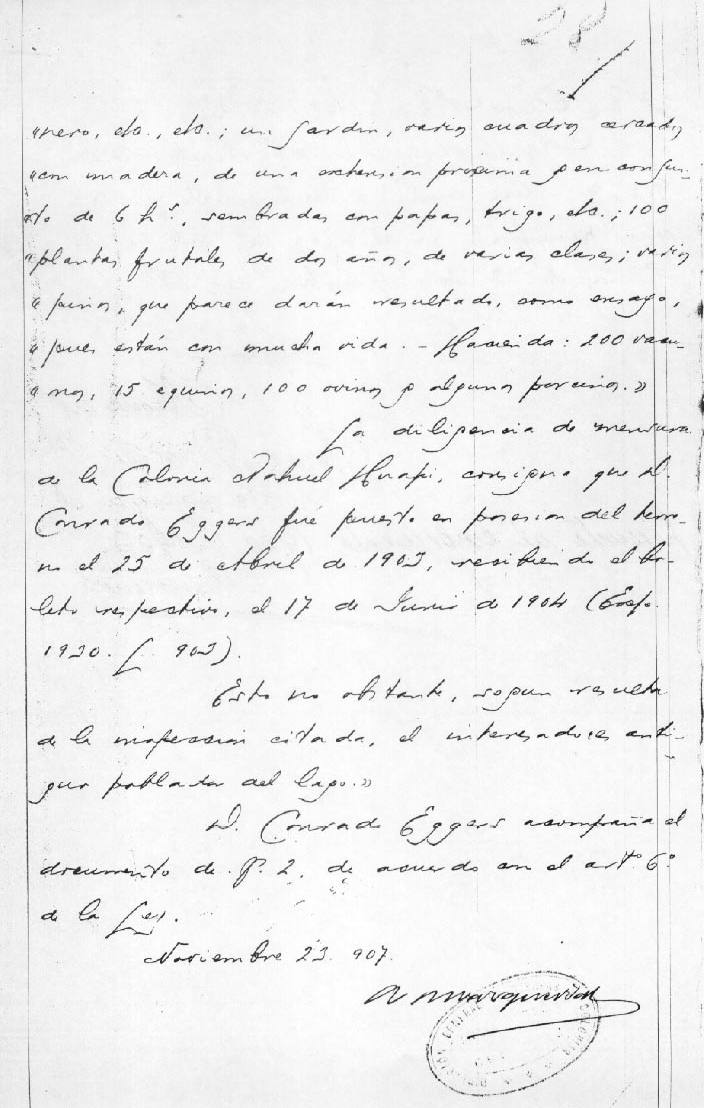 28
"nero, etc., etc.; un jardin, varios cuadros cercados
"con madera, de una extension proxima y en conjun-
"to de 6 hs., sembradas con papas, trigo, etc.; 100
"plantas frutales de dos años, de varias clases; varios
"pinos, que parece darán resultado, como ensayo,
"pues están con mucha vida. - Hacienda: 200 vacu-
"nos, 15 equinos, 100 ovinos y algunos porcinos."
La diligencia de mensura
de la Colonia Nahuel Huapi, consigna que D.
Conrado Eggers fué puesto en posesion del terre-
no el 25 de Abril de 1903, recibiendo el bo-
leto respectivo, el 17 de Junio de 1904 (Exp.
903).
Esto no obstante, segun resulta
de la inspeccion citada, el interesado "es anti-
guo poblador del lago."
D. Conrado Eggers acompaña el
documento de f. 2, de acuerdo con el artº 6º
de la Ley.
Noviembre 23. 907.